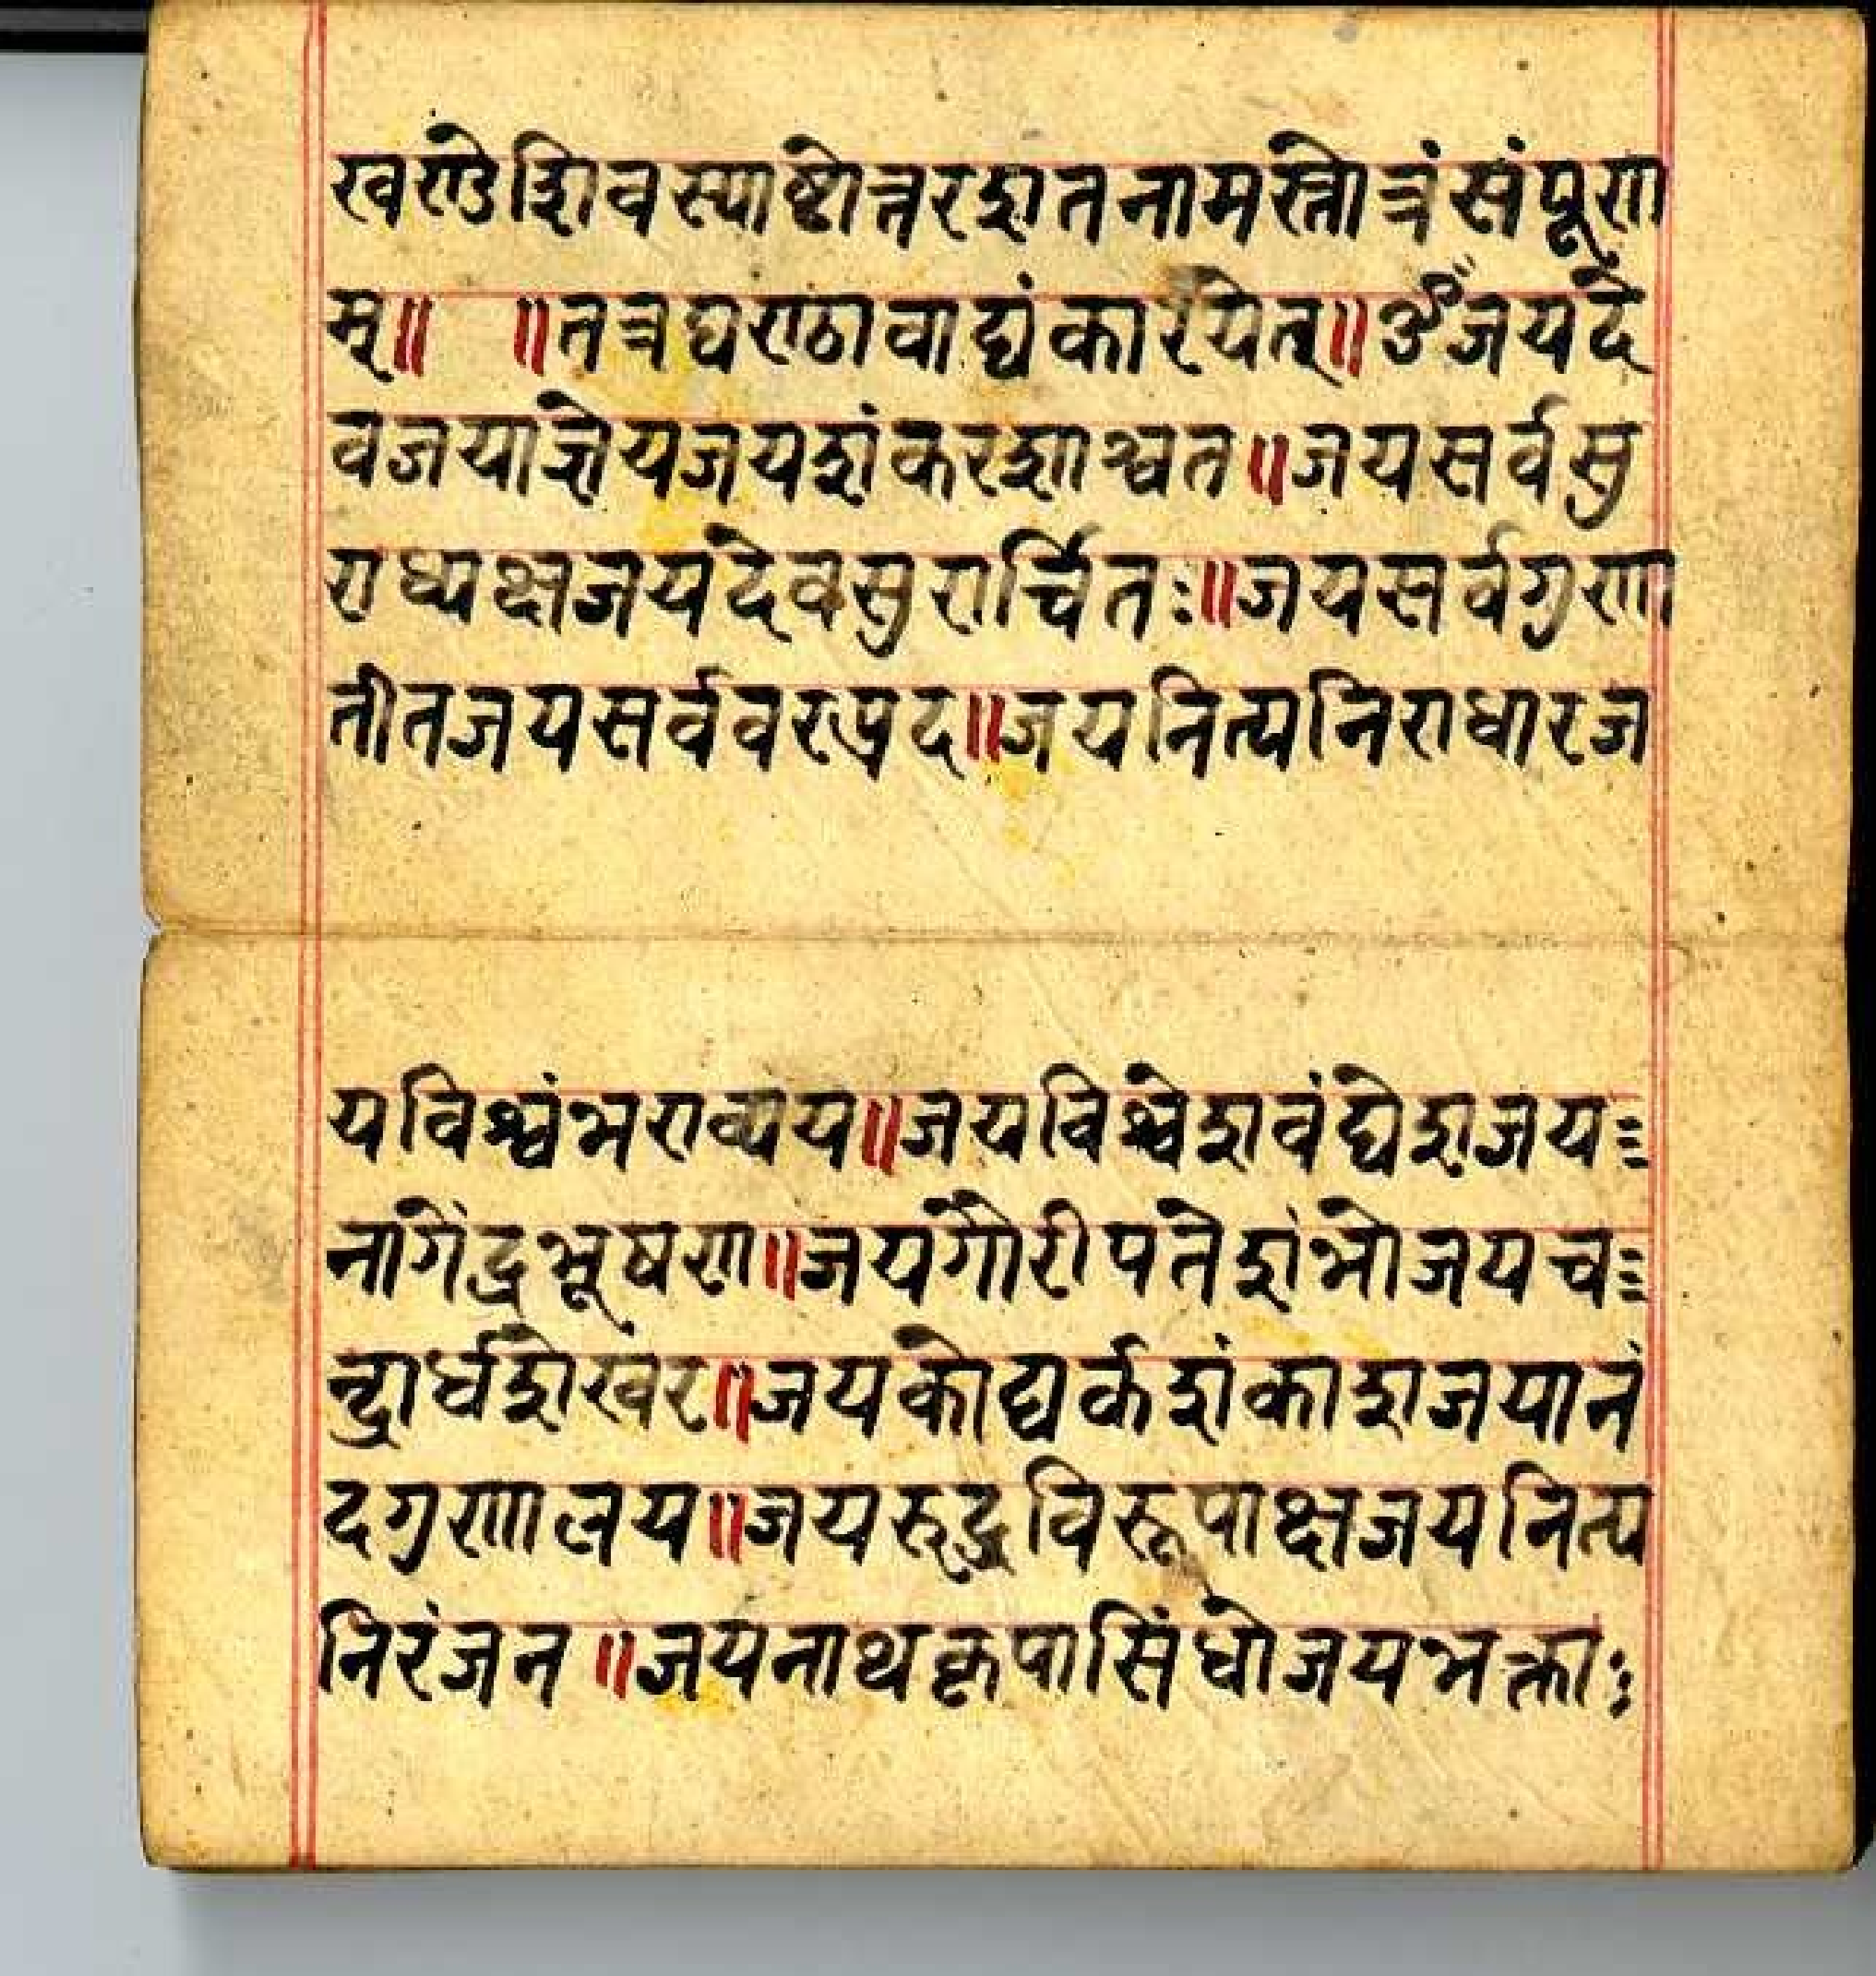 खण्डेशिवस्याष्टोत्तरशतनामस्तोत्रंसंपूर्ण
म्॥ ॥तत्रघण्ठावाद्यंकारयेत्॥ॐजयदे
वजयाज्ञेयजयशंकरशाश्वत॥जयसर्वसु
राध्यक्षजयदेवसुरार्चितः॥जयसर्वगुणा
तीतजयसर्ववरप्रद॥जयनित्यनिराधारज
यविश्वंभराव्यय॥जयविश्वेशवंद्येशजय
नागेंद्रभूषण॥जयगौरीपतेशंभोजयच
न्द्रार्धशेखर॥जयकोद्यर्कशंकाशजयानं
दगुणालय॥जयरुद्रविरूपाक्षजयनित्य
निरंजन॥जयनाथकृपासिंधोजयभक्ताः